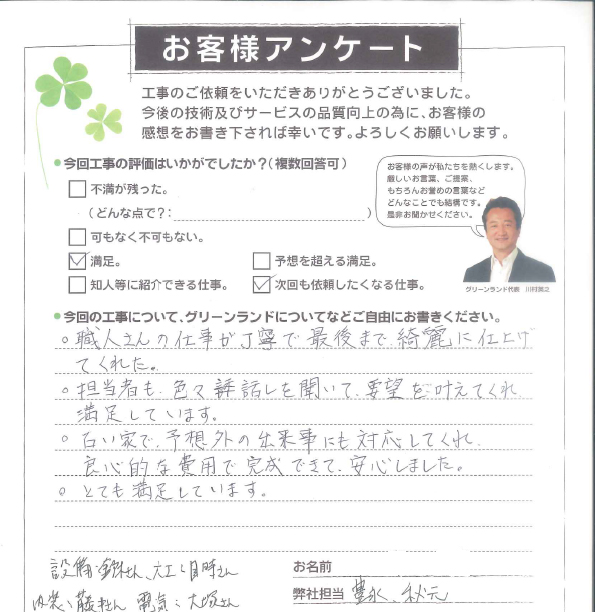 お客様アンケート
工事のご依頼をいただきありがとうございました。
今後の技術及びサービスの品質向上の為に、お客様の
感想をお書き下されば幸いです。よろしくお願いします。
●今回工事の評価はいかがでしたか？（複数回答可）
不満が残った。
（どんな点で？： ）
可もなく不可もない。
満足。
予想を超える満足。
知人等に紹介できる仕事。
次回も依頼したくなる仕事。
お客様の声が私たちを熱くします。
厳しいお言葉、ご提案、
もちろんお誉めの言葉など
どんなことでも結構です。
是非お聞かせください。
グリーンランド代表 川村英之
●今回の工事について、グリーンランドについてなどご自由にお書きください。
○職人さんの仕事が丁寧で最後まで綺麗に仕上げ
てくれた。
○担当者も、色々話しを聞いて、要望を叶えてくれ
満足しています。
○古い家で、予想外の出来事にも対応してくれ、
良心的な費用で完成できて、安心しました。
○とても満足しています。
設備:さん、大工:さん
内装:藤村さん 電気:大塚さん
お名前
弊社担当 豊永、秋元